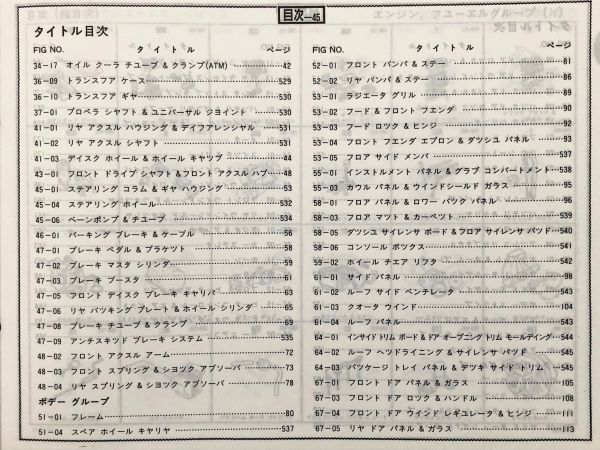 目次—45
タイトル目次
FIG NO. タイトル ページ
34-17 オイル クーラ チューブ & クランプ(ATM) 42
36-09 トランスフア ケース 529
36-10 トランスフア ギヤ 530
37-01 プロペラ シヤフト & ユニバーサル ジヨイント 530
41-01 リヤ アクスル ハウジング & デイフアレンシヤル 531
41-02 リヤ アクスル シヤフト 531
41-03 デイスク ホイール & ホイール キヤツプ 44
43-01 フロント ドライブ シヤフト & フロント アクスル ハブ 48
45-01 ステアリング コラム & ギヤ ハウジング 53
45-04 ステアリング ホイール 532
45-06 ベーンポンプ & チユーブ 534
46-01 パーキング ブレーキ & ケーブル 56
47-01 ブレーキ ペダル & ブラケツト 58
47-02 ブレーキ マスタ シリンダ 59
47-03 ブレーキ ブースタ 61
47-05 フロント デイスク ブレーキ キヤリパ 63
47-06 リヤ バツキング プレート & ホイール シリンダ 65
47-08 ブレーキ チユーブ & クランプ 69
47-09 アンチスキツド ブレーキ システム 535
48-02 フロント アクスル アーム 72
48-03 フロント スプリング & シヨツク アブソーバ 73
48-04 リヤ スプリング & シヨツク アブソーバ 78
ボデー グループ
51-01 フレーム 80
51-04 スペア ホイール キヤリヤ 537
FIG NO. タイトル ページ
52-01 フロント バンパ & ステー 81
52-02 リヤ バンパ & ステー 86
53-01 ラジエータ グリル 89
53-02 フード & フロント フエンダ 90
53-03 フード ロツク & ヒンジ 92
53-04 フロント フエンダ エプロン & ダツシユ パネル 93
53-05 フロア サイド メンバ 537
55-01 インストルメント パネル & グラブ コンパートメント 538
55-03 カウル パネル & ウインドシールド ガラス 95
58-01 フロア パネル & ロワー バツク パネル 96
58-03 フロア マツト & カーペツト 539
58-05 ダツシユ サイレンサ ボード & フロア サイレンサ パツド 540
58-06 コンソール ボツクス 541
59-02 ホイール チエア リフタ 542
61-01 サイド パネル 98
61-02 ルーフ サイド ベンチレータ 543
61-03 クオータ ウインド 104
61-04 ルーフ パネル 543
64-01 インサイド トリム ボード & ドア オープニング トリム モールデイング 544
64-02 ルーフ ヘツドライニング & サイレンサ パツド 545
64-03 パツケージ トレイ パネル & デツキ サイド トリム 545
67-01 フロント ドア パネル & ガラス 105
67-03 フロント ドア ロツク & ハンドル 108
67-04 フロント ドア ウインド レギユレータ & ヒンジ 111
67-05 リヤ ドア パネル & ガラス 113